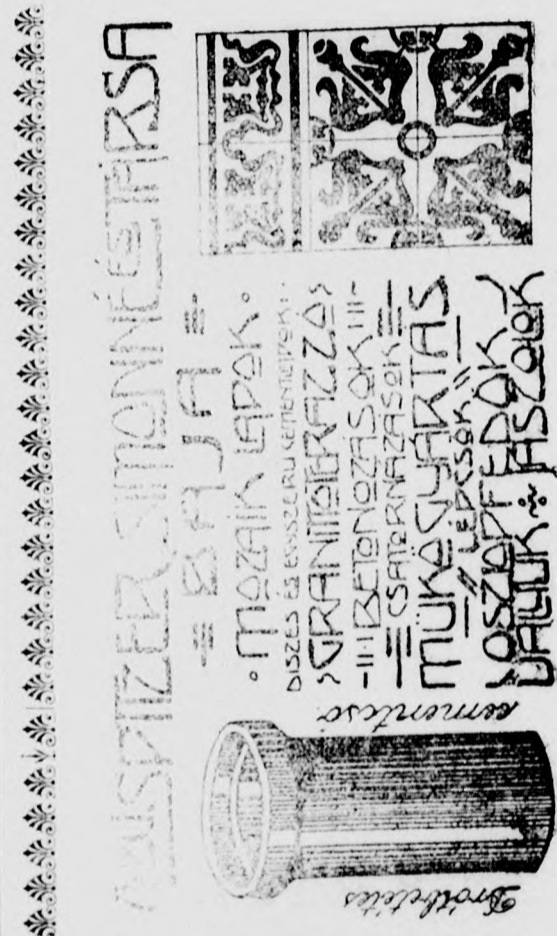 AUSPITZER SIMONNÉ ÉS TÁRSA
BAJA
MOZAIK LAPOK
DISZES ÉS EGYSZERÜ CEMENTLAPOK
GRANITOTERAZZO
BETONOZÁSOK
CSATORNÁZÁSOK
MÜKŐGYÁRTÁS
LÉPCSŐK
OSZLOPFEDŐK
VALYUK JÁSZOLOK
Drótbetétes
cementcső